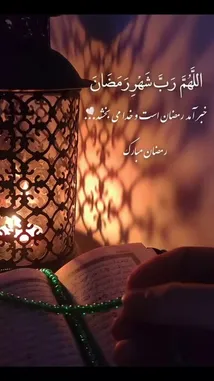 اللَّهُمَّ رَبَّ شَهْرِ رَمَضَانَ
خبر آمد رمضان است و خدا می بخشد...
رمضان مبارک